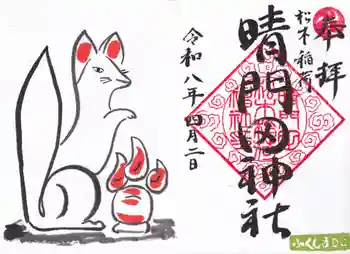 奉拝
松木稲荷
晴門田神社
令和八年四月二日
ふくしまDC